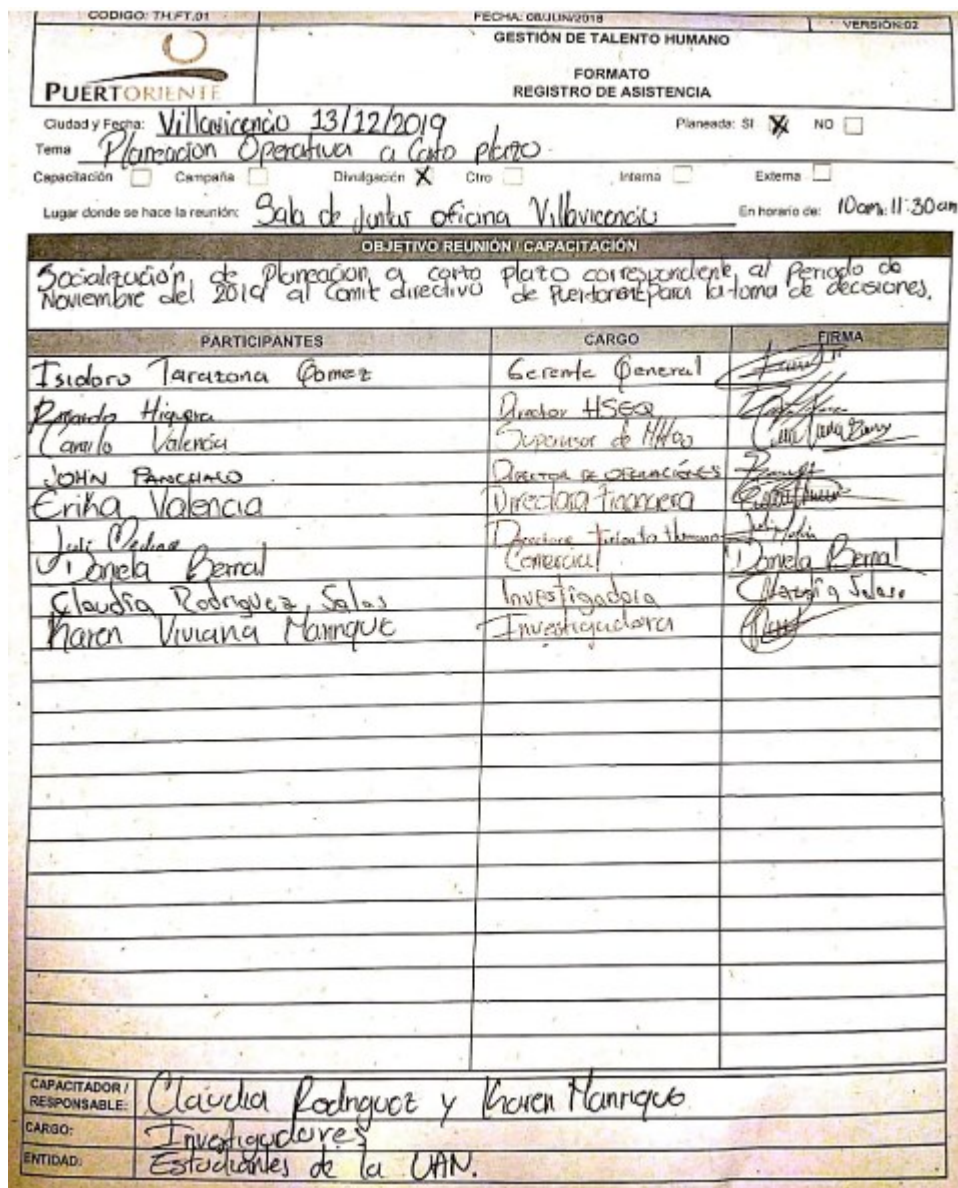 CODIGO: TH.FT.01 FECHA: 08/JUN/2018 VERSIÓN:02
GESTIÓN DE TALENTO HUMANO
FORMATO
REGISTRO DE ASISTENCIA
PUERTORIENTE
Ciudad y Fecha: Villavicencio 13/12/2019 Planeada: SI X NO
Tema Planeacion Operativa a Corto plazo.
Capacitación Campaña Divulgación X Otro Interna Externa
Lugar donde se hace la reunión: Sala de Juntas oficina Villavicencio En horario de: 10am:11:30am
OBJETIVO REUNIÓN / CAPACITACIÓN
Socialización de Planeacion a corto plazo correspondiente al Periodo de
Noviembre del 2019 al Comite directivo de Puertoriente para la toma de decisiones.
PARTICIPANTES CARGO FIRMA
Isidoro Tarazona Gomez Gerente General
Higuera Director HSEQ
Camilo Valencia Supervisor de
JOHN PANCHALO DIRECTOR DE OPERACIONES
Erika Valencia Directora financiera
Juli Medina Directora Talento Humano
Daniela Bernal Comercial Daniela Bernal
Claudia Rodriguez Salas Investigadora Claudia Salas
Karen Viviana Manrique Investigadora
CAPACITADOR / RESPONSABLE: Claudia Rodriguez y Karen Manrique
CARGO: Investigadores
ENTIDAD: Estudiantes de la UAN.